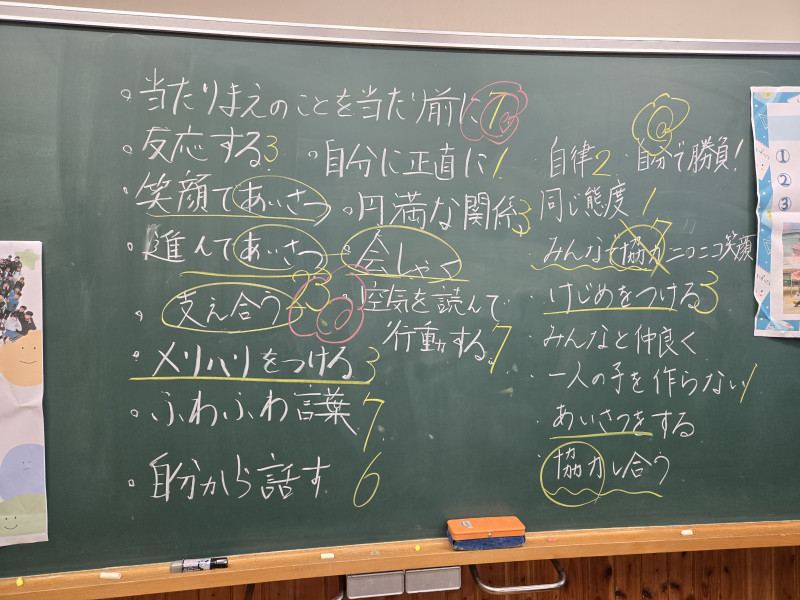 。当たりまえのことを当たり前に 7
。反応する 3
。自分に正直に 1
。笑顔であいさつ
。円満な関係 3
。進んであいさつ 会しゃく
。支え合う 23
。空気を読んで
行動する。7
。メリハリをつける 3
。ふわふわ言葉 7
。自分から話す 6
自律 2
自分で勝負!
同じ態度 1
・みんなで協力 ニコニコ笑顔 7
・けじめをつける 3
・みんなと仲良く
・一人の子を作らない 1
・あいさつをする
・協力し合う
①
②
③